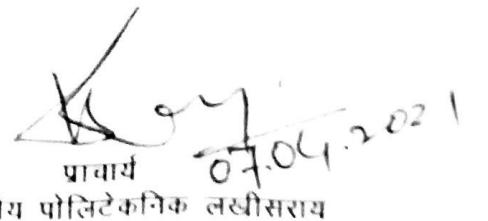 07.04.2021
प्राचार्य
पोलिटेकनिक लखीसराय